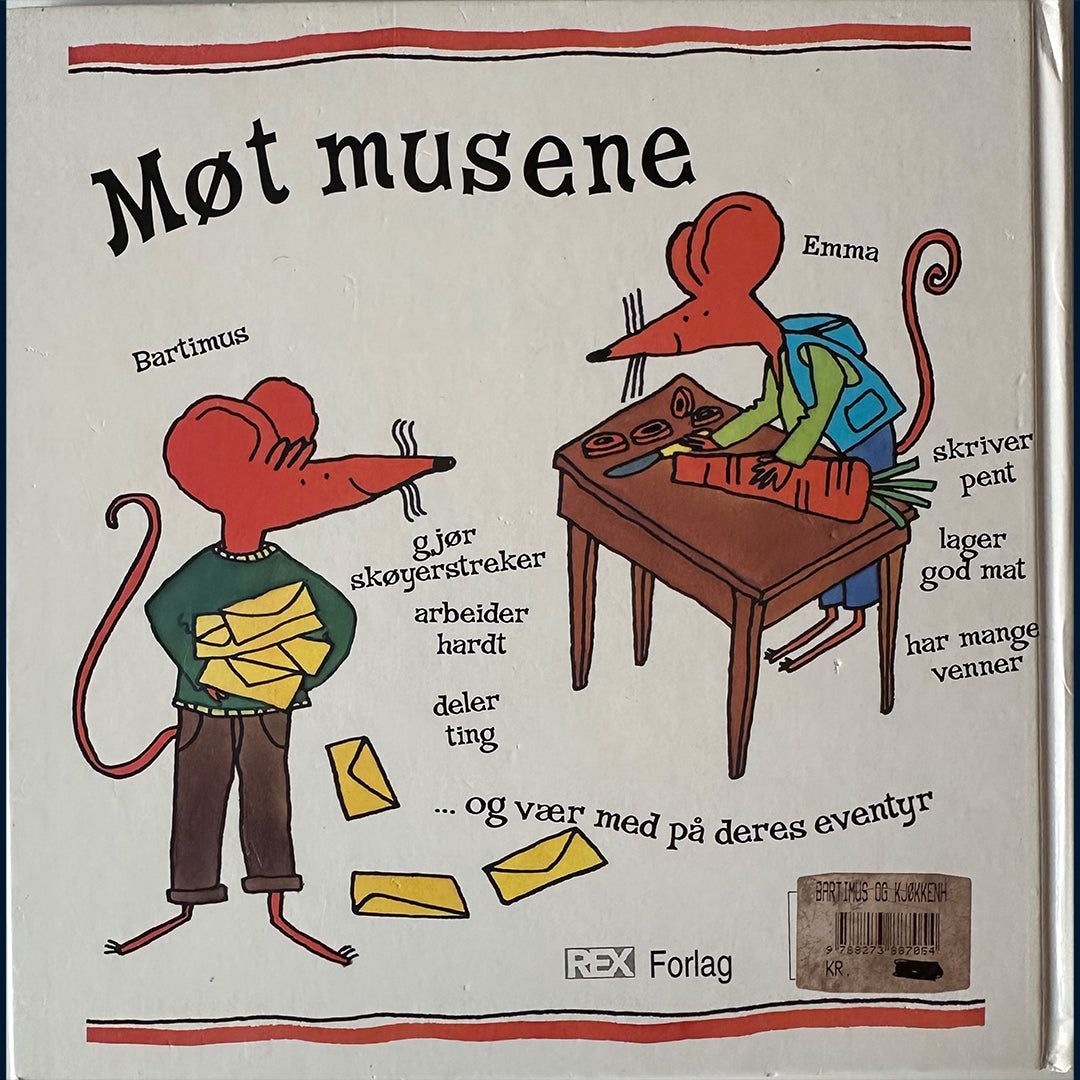 Møt musene
Emma
Bartimus
gjør
skøyerstreker
arbeider
hardt
deler
ting
skriver
pent
lager
god mat
har mange
venner
... og vær med på deres eventyr
BARTIMUS OG KJØKKENH
9 788273 887054
KR.
REX Forlag